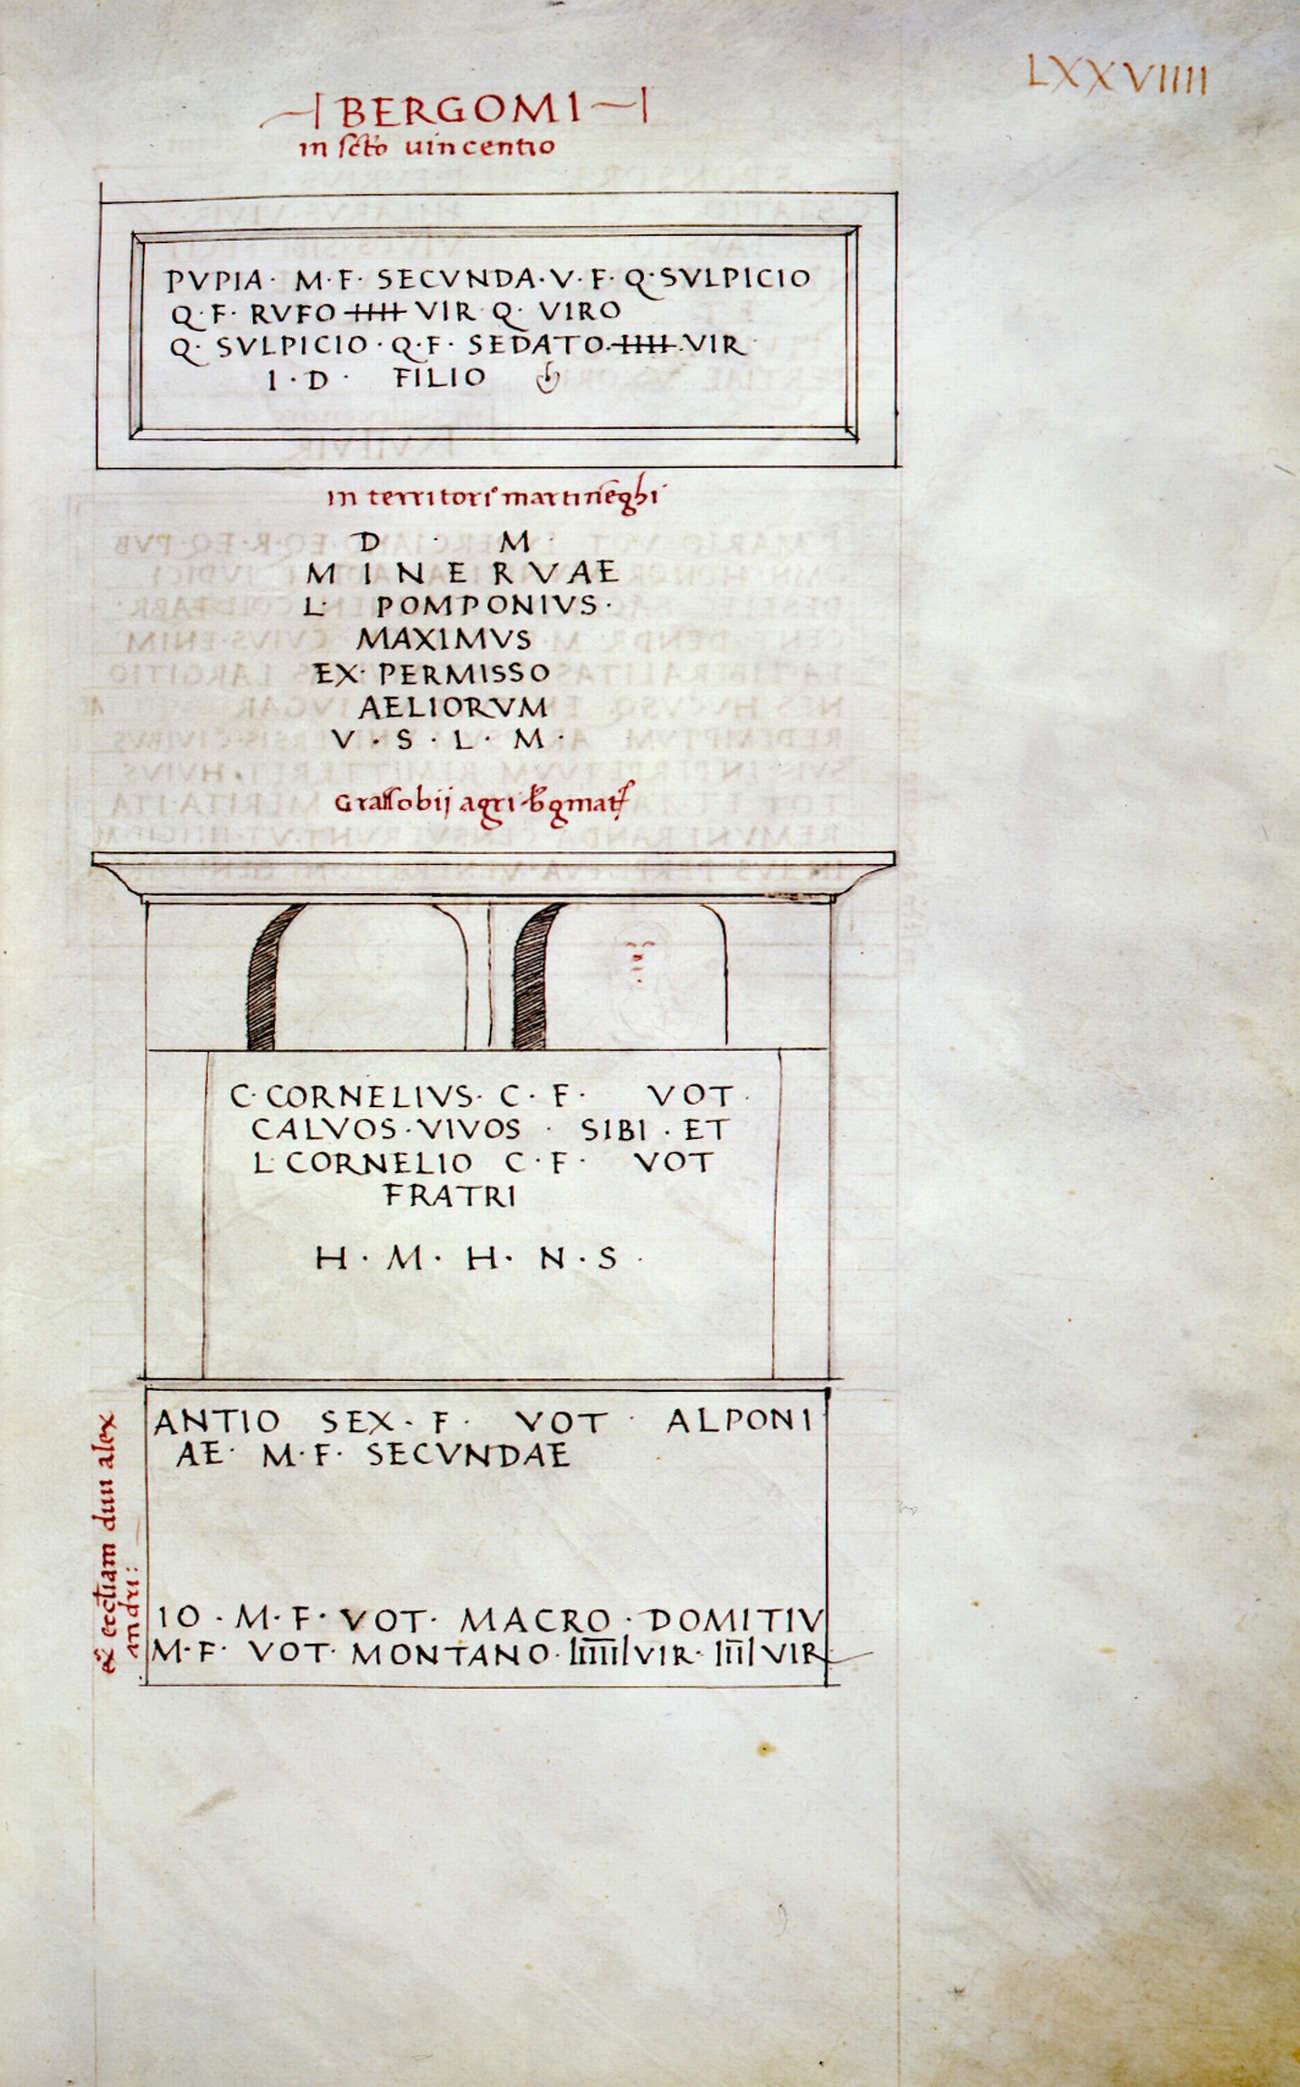 LXXVIIII
BERGOMI
in scto uincentio
PVPIA · M · F · SECVNDA · V · F · Q · SVLPICIO
Q · F · RVFO IIIII VIR Q · VIRO
Q · SVLPICIO · Q · F · SEDATO · IIIII · VIR
I · D · FILIO
in territori martinēghi
D · M ·
MINERVAE
L · POMPONIVS ·
MAXIMVS
EX · PERMISSO
AELIORVM
V · S · L · M ·
Grassobij agri
C · CORNELIVS · C · F · VOT ·
CALVOS · VIVOS · SIBI · ET
L · CORNELIO C · F · VOT
FRATRI
H · M · H · N · S ·
ANTIO SEX · F · VOT · ALPONI
AE · M · F · SECVNDAE
IO · M · F · VOT · MACRO · DOMITIV
M · F · VOT · MONTANO · IIIIII VIR · IIII VIR
alex
andri: